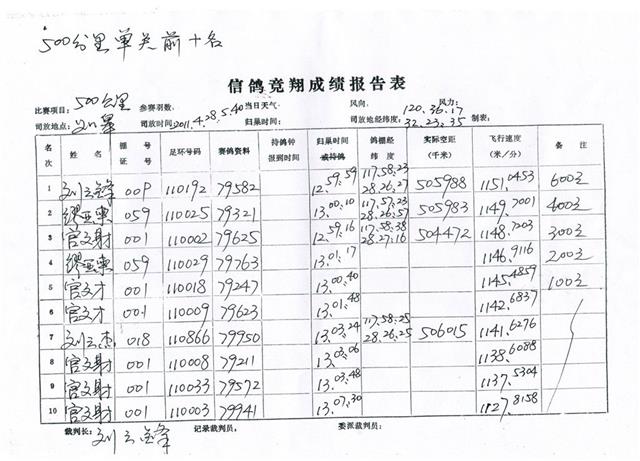 500公里单关前十名
信鸽竞翔成绩报告表
比赛项目：500公里 参赛羽数： 当日天气 风向： 风力：
司放地点： 司放时间：2011.4.28.5.40 归巢时间： 司放地经纬度：120.36.17 32.23.35 制表：
名次 姓名 棚号证号 足环号码 赛鸽资料 待鸽钟报到时间 归巢时间 或待鸽 鸽棚经纬度 实际空距（千米） 飞行速度（米/分） 备注
1 刘云锋 009 110192 79582 12.59.59 117.58.23 28.26.27 505988 1151.0453 600元
2 缪亚东 059 110025 79321 13.00.10 117.57.23 28.26.57 505983 1149.7001 400元
3 官文财 001 110002 79625 12.59.16 117.58.38 28.27.16 504472 1148.7203 300元
4 缪亚东 059 110029 79763 13.01.17 1146.9116 200元
5 官文才 001 110018 79247 13.00.40 1145.4859 100元
6 官文才 001 110009 79623 13.01.48 1142.6837
7 刘云杰 018 110866 79950 13.03.24 117.58.25 28.26.25 506015 1141.6276
8 官文财 001 110008 79211 13.03.06 1138.6088
9 官文财 001 110033 79572 13.03.48 1137.5304
10 官文财 001 110003 79941 13.07.30 1127.8158
裁判长：刘云锋 记录裁判员： 委派裁判员：